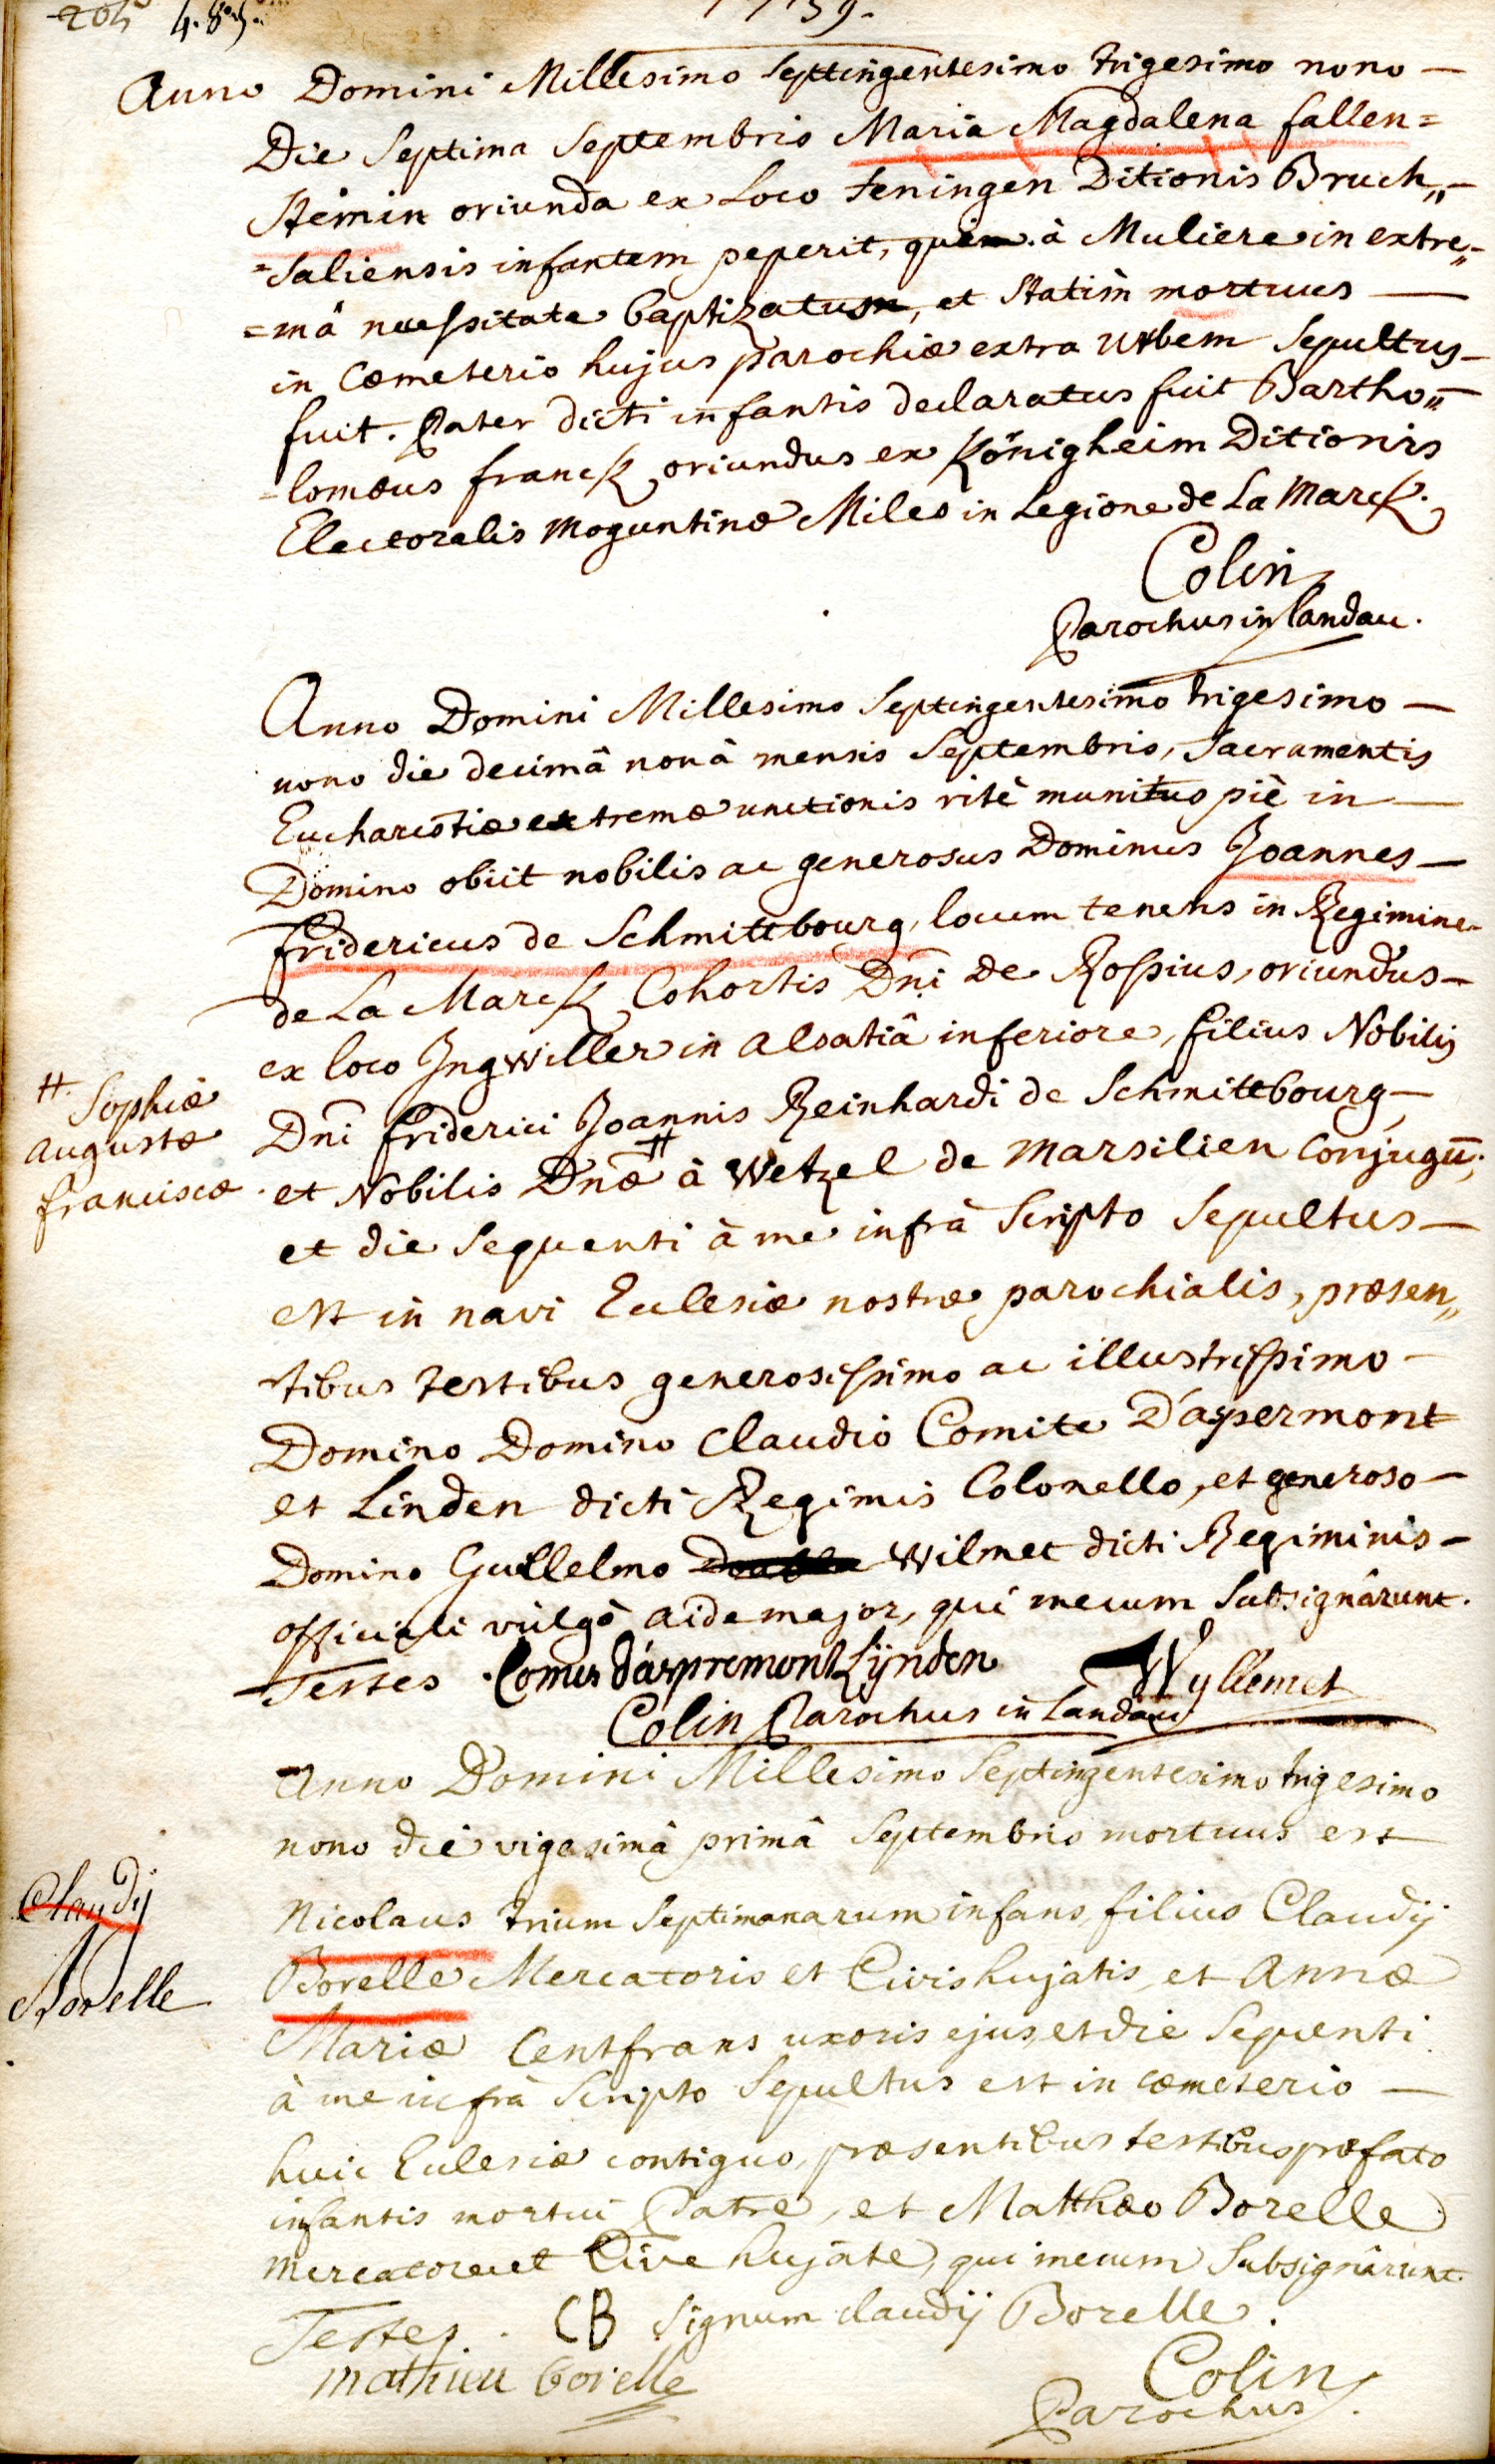 1739.
Anno Domini Millesimo Septingentesimo trigesimo nono —
Die Septima Septembris Maria Magdalena fallen=
Steinin oriunda ex Loco teningen Ditionis Bruch„-
=saliensis infantem peperit, qui à Muliere in extre„-
=mâ necessitate baptizatus, et Statim mortuus —
in Cœmeterio hujus parochiæ extra Urbem Sepultus —
fuit. Pater dicti infantis declaratus fuit Bartho„-
=lomæus franck, oriundus ex Königheim Ditionis
Electoralis Moguntinæ Miles in Legione de La Marck.
Colin
Parochus in Landau.
Anno Domini Millesimo Septingentesimo trigesimo —
nono die decimâ nonâ mensis Septembris, Sacramentis
Eucharistiæ extremæ unctionis ritè munitus piè in —
Domino obiit nobilis ac generosus Dominus Joannes —
fridericus de Schmittbourg, locum tenens in Regimine
de La Marck, Cohortis Dni de Rossius, oriundus —
ex loco Ingwiller in alsatiâ inferiore, filius Nobilis
Dni friderici Joannis Reinhardi de Schmittbourg —
# Sophiæ
augustæ
franciscæ
et Nobilis Dnæ # à Wetzel de Marsilien Conjugū;
et die Sequenti à me infrà Scripto Sepultus —
est in navi Ecclesiæ nostræ parochialis, præsen„
tibus testibus generosissimo ac illustrissimo —
Domino Domino Claudio Comite D'aspermont
et Linden dicti Regimis Colonello, et generoso —
Domino Guillelmo Wilmet dicti Regiminis —
officiali vulgò aide major, qui mecum Subsignârunt.
Testes Comes d'aspremont Lÿnden Wyllemet
Colin Parochus in Landau
Anno Domini Millesimo Septingentesimo trigesimo
nono die vigesimâ primâ Septembris mortuus est
Claudij
Borelle
Nicolaus trium Septimanarum infans, filius Claudij
Borelle Mercatoris et Civis hujatis, et Annæ
Mariæ Centfrans uxoris ejus, et die Sequenti
à me infrà Scripto Sepultus est in cœmeterio —
huic Ecclesiæ contiguo, præsentibus testibus præfato
infantis mortui Patre, et Matthæo Borelle
mercatore et Cive hujate, qui mecum Subsignârunt.
Testes. CB Signum claudij Borelle.
mathieu borelle
Colin
Parochus.